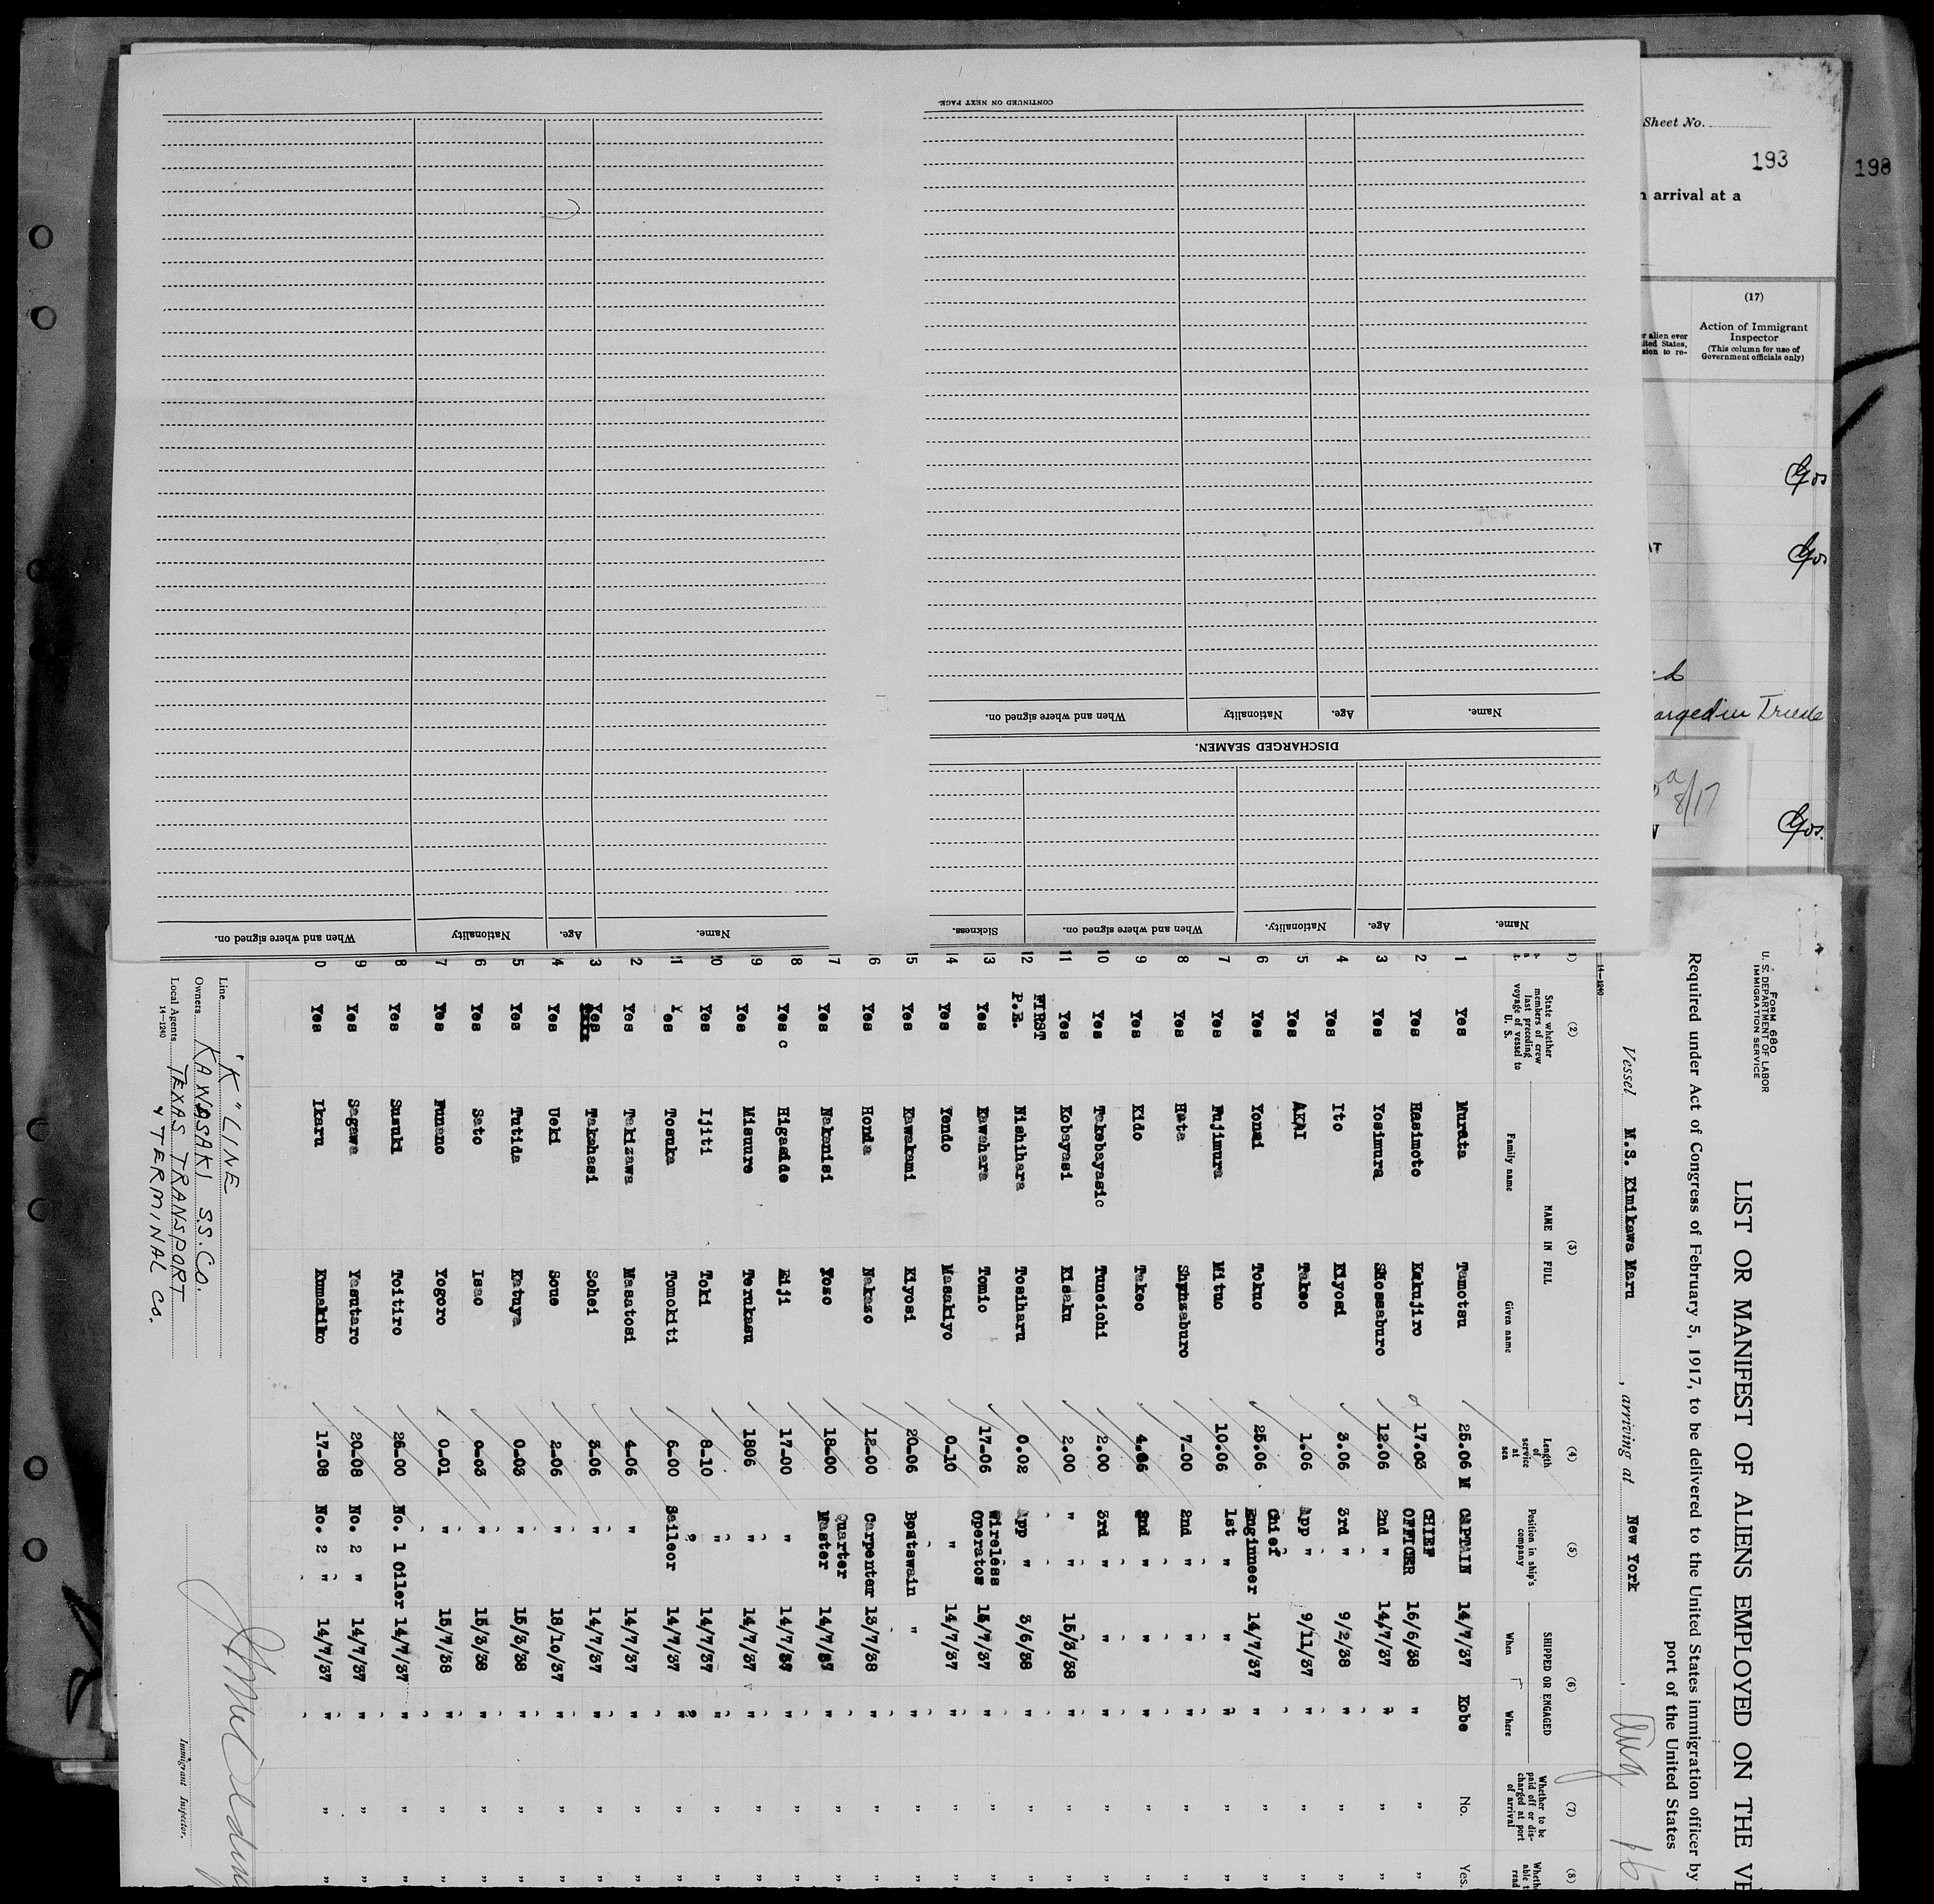 Sheet No.
193
198
arrival at a
(17)
r alien ever
ited States,
sion to re-
Action of Immigrant
Inspector
(This column for use of
Government officials only)
CONTINUED ON NEXT PAGE.
Name. Age. Nationality When and where signed on.
DISCHARGED SEAMEN.
Name. Age. Nationality. When and where signed on. Sickness.
Name. Age. Nationality When and where signed on.
FORM 680
U. S. DEPARTMENT OF LABOR
IMMIGRATION SERVICE
LIST OR MANIFEST OF ALIENS EMPLOYED ON THE VE
Required under Act of Congress of February 5, 1917, to be delivered to the United States immigration officer by
port of the United States
Vessel M.S. Kimikawa Maru , arriving at New York , Aug 16
14-1240
(2) (3) (4) (5) (6) (7) (8)
State whether members of crew last preceding voyage of vessel to U. S.
NAME IN FULL
Family name Given name
Length of service at sea
Position in ship's company
SHIPPED OR ENGAGED
When Where
Whether to be paid off or discharged at port of arrival
1 Yes Murata Tamotsu 25.06 M CAPTAIN 14/7/37 Kobe No. Yes.
2 Yes Hasimoto Kakujiro 17.03 CHIEF OFFICER 16/6/38 " " "
3 Yes Yosimura Shossaburo 12.06 2nd " 14/7/37 " " "
4 Yes Ito Kiyosi 3.06 3rd " 9/2/38 " " "
5 Yes AKAI Takeo 1.06 App " 9/11/37 " " "
6 Yes Yonai Tokuo 25.06 Chief Enginneer 14/7/37 " " "
7 Yes Fujimura Mituo 10.06 1st " " " " "
8 Yes Hata Shynzaburo 7-00 2nd " " " " "
9 Yes Kido Takeo 4.06 2nd " " " " "
10 Yes Takebayasic Tuneichi 2.00 3rd " " " " "
11 Yes Kobayasi Kisaku 2.00 " " 15/3/38 " " "
12 FIRST P.E. Nishihara Tosiharu 0.02 App " 3/6/38 " " "
13 Yes Kawahara Tomio 17-06 Wireless Operator 14/7/37 " " "
14 Yes Yendo Masakiyo 0-10 " 14/7/37 " " "
15 Yes Kawakami Kiyosi 20-06 Boatswain " " " "
16 Yes Honda Nakazo 12-00 Carpenter 13/7/38 " " "
17 Yes Nakanisi Yozo 18-00 Quarter Master 14/7/37 " " "
18 Yes c Higaside Eiji 17-00 " 14/7/37 " " "
19 Yes Misuure Terukasu 1806 " 14/7/37 " " "
10 Yes Ijiti Toki 8-10 " 14/7/37 " " "
11 Yes Tosuka Tomokiti 6-00 Saileor 14/7/37 " " "
2 Yes Takizawa Masatosi 4-06 " 14/7/37 " " "
3 Yes Takahasi Sohei 3-06 " 14/7/37 " " "
4 Yes Ueki Soue 2-06 " 18/10/37 " " "
5 Yes Tutida Katuya 0-03 " 15/3/38 " " "
6 Yes Sato Isao 0-03 " 15/3/38 " " "
7 Yes Funano Yogoro 0-01 " 15/7/38 " " "
8 Yes Susuki Toitiro 26-00 No. 1 Oiler 14/7/37 " " "
9 Yes Sagawa Yasutaro 20-08 No. 2 " 14/7/37 " " "
0 Yes Ikaru Kumakiko 17-08 No. 2 " 14/7/37 " " "
Line "K" LINE
Owners KAWASAKI S.S. CO.
Local Agents TEXAS TRANSPORT
& TERMINAL CO.
14-1240
Immigrant Inspector.